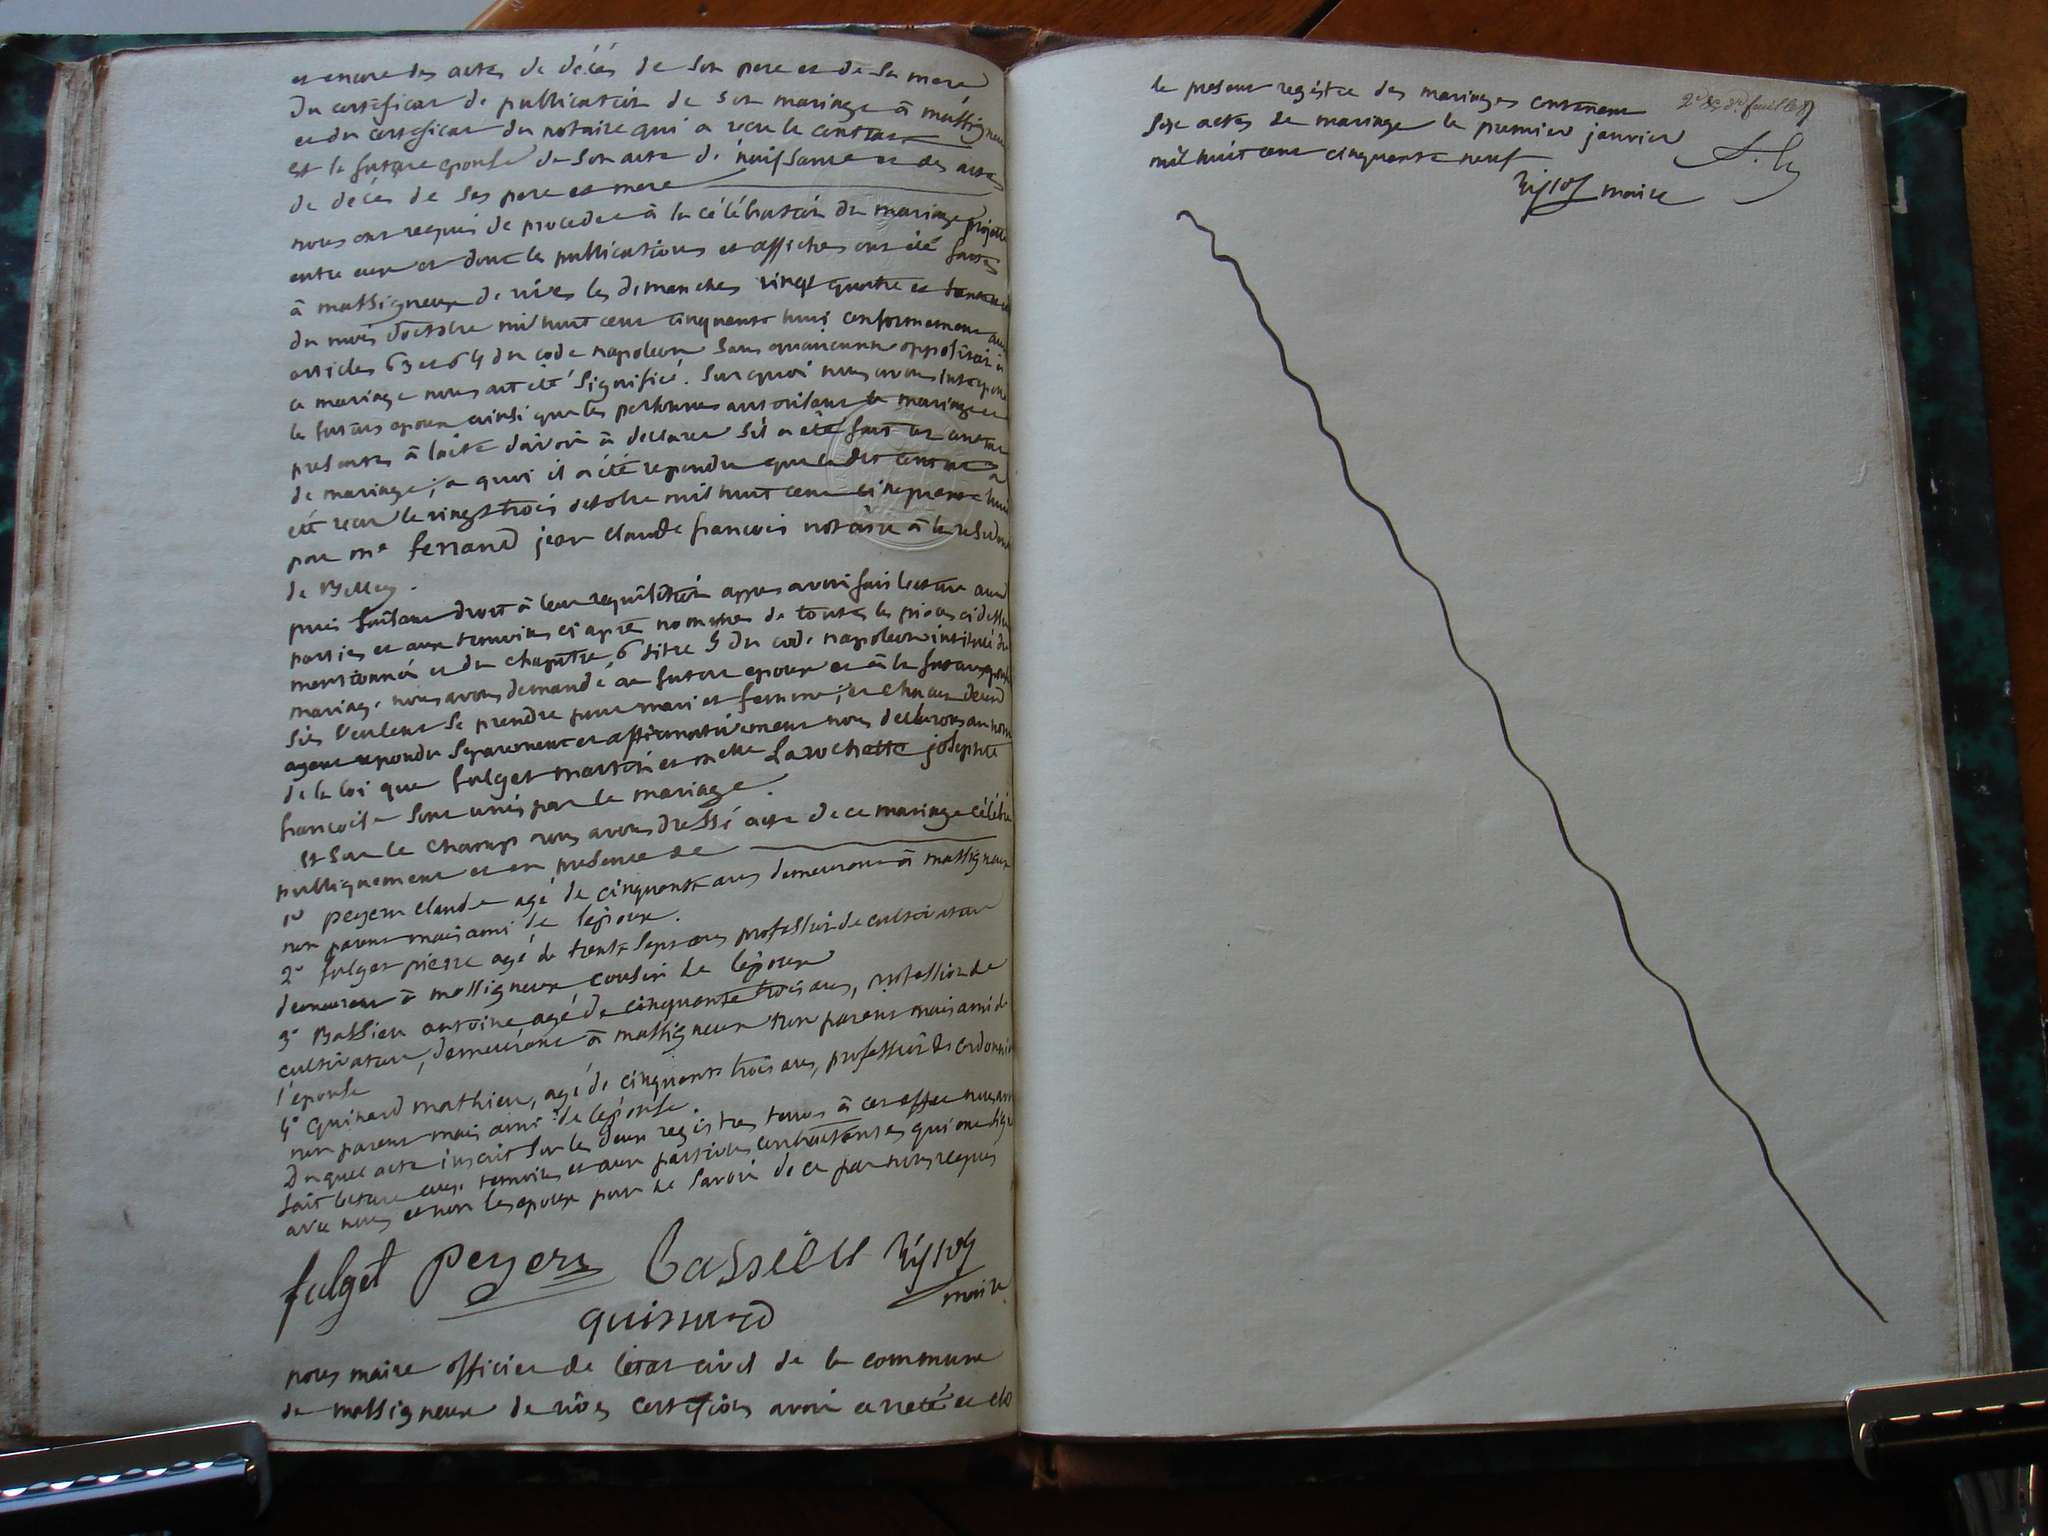 et encore des actes de décés de son pere et de sa mere
du certificat de publication de son mariage â massigneux
et du certificat du notaire qui a recu le contrat
est la future epouse de son acte de naissance et des actes
de décés de ses pere et mere
nous ont requis de proceder â la célébration du mariage projetté
entre eux et dont les publications et affiches ont été faites
â massigneux de rives les dimanches vingt quatre et trente un
du mois d'octobre mil huit cent cinquante huit conformement aux
articles 63 et 64 du code napoleon sans qu'aucune opposition à
ce mariage nous ait été signifié. Sur quoi nous avons interpellé
les futurs epoux ainsi que les personnes autorisant le mariage et
presentes â l'acte d'avoir â declarer s'il a été fait un contrat
de mariage, a quoi il a été repondu que le dit contrat a
été recu le vingt trois octobre mil huit cent cinquante huit
par me ferrand jean claude francois notaire â la residence
de Belley.
puis faisant droit â leur requisition apres avoir fait lecture aux
parties et aux temoins ci apres nommés de toutes les pieces ci dessus
mentionnés et du chapitre 6 titre 5 du code napoleon intitulé du
mariage, nous avons demandé au futur epoux et â la future epouse
s'ils veulent se prendre pour mari et femme, et chacun deux
ayant repondu separement et affirmativement nous declarons au nom
de la loi que fulget martin et melle Larochette josephte
francoise sont unis par le mariage.
Et sur le champ nous avons dressé acte de ce mariage célébré
publiquement et en presence de
1o peyern claude agé de cinquante ans demeurant â massigneux
non parent mais ami de l'epoux.
2o fulget pierre agé de trente sept ans profession de cultivateur
demeurant â massigneux cousin de l'epoux
3o Bassieu antoine agé de cinquante trois ans, profession de
cultivateur, demeurant â massigneux non parent mais ami de
l'epouse
4o Guinard mathieu, agé de cinquante trois ans, profession de cordonnier
non parent mais ami de l'epouse.
Duquel acte inscrit sur les deux registres tenus â cet effet nous avons
fait lecture aux temoins et aux parties contractantes qui ont signé
avec nous et non les epoux pour ne savoir de ce par nous requis
fulget peyern bassieu maire
guinard
nous maire officier de l'état civil de la commune
de massigneux de rives certifions avoir arreté et clo
2e & de feuillet
le present registre des mariages contenant
six actes de mariage le premier janvier
mil huit cent cinquante neuf
maire